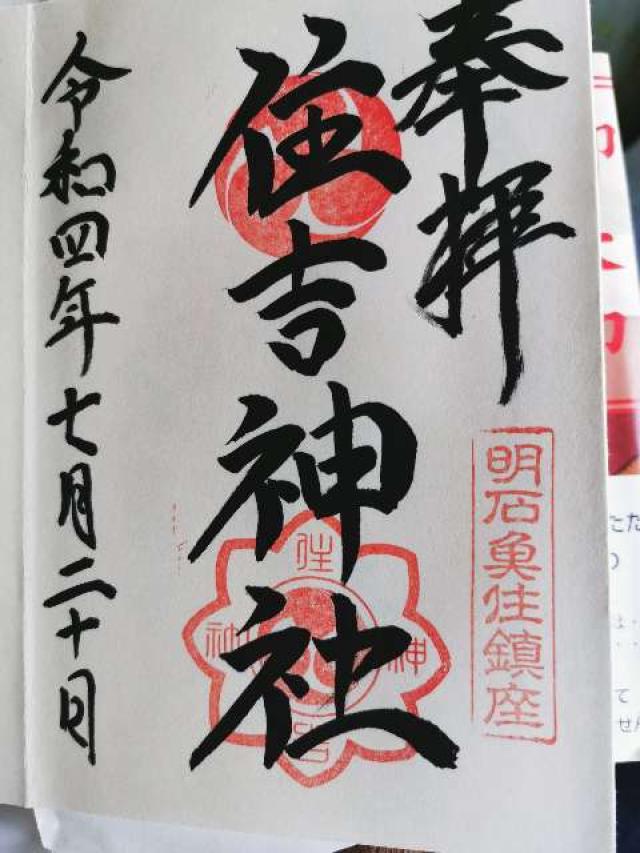 奉拝
明石魚住鎮座
住吉神社
住吉神社
令和四年七月二十日